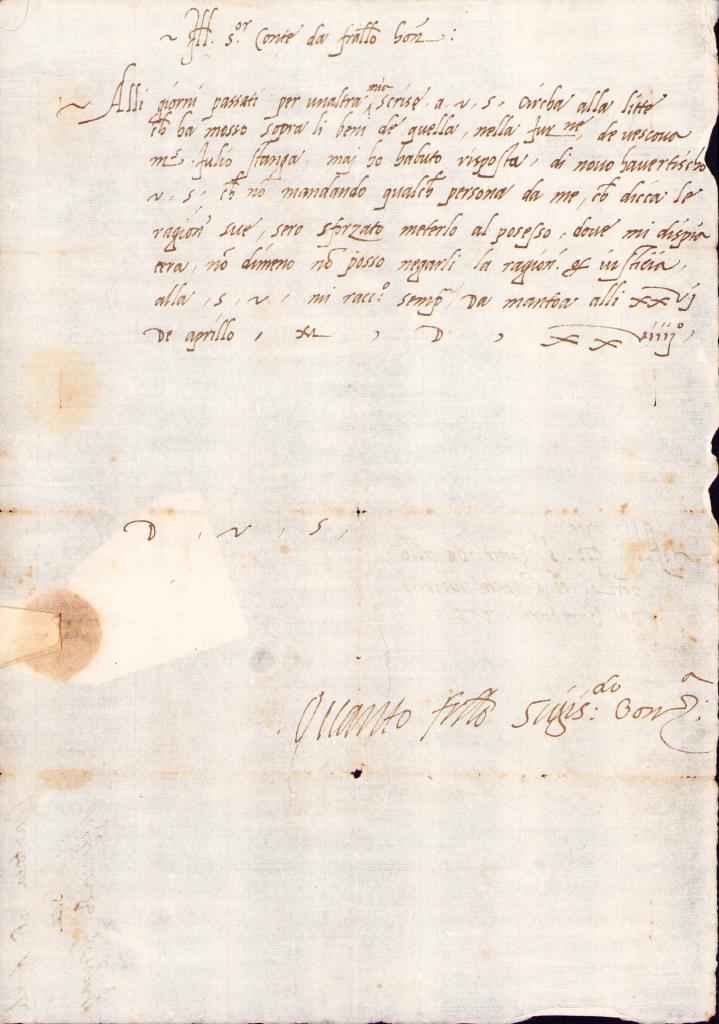 ~ Ill. s.or Conte da fratllo hon:
~ Alli giorni passati per unaltra mia scrisse a, v, s, circha alla litte
ch ha mosso sopra li beni de quella, nella de vescova
mr. Julio stanga, maj ho habuto risposta, di novo havertischo
v, s, ch nō mandando qualch persona da me, ch dicca le
ragion' sue, sero sforzato meterlo al posesso, dove mi dispia
cera, nō dimeno nō posso negarli la ragion. & iusticia,
alla, s, v, mi racc:o semp' Da mantoa alli xxvj
De aprillo, M, D, xxviiijo,
D, v, s,
Quanto frllo Sigis:do Gonza: